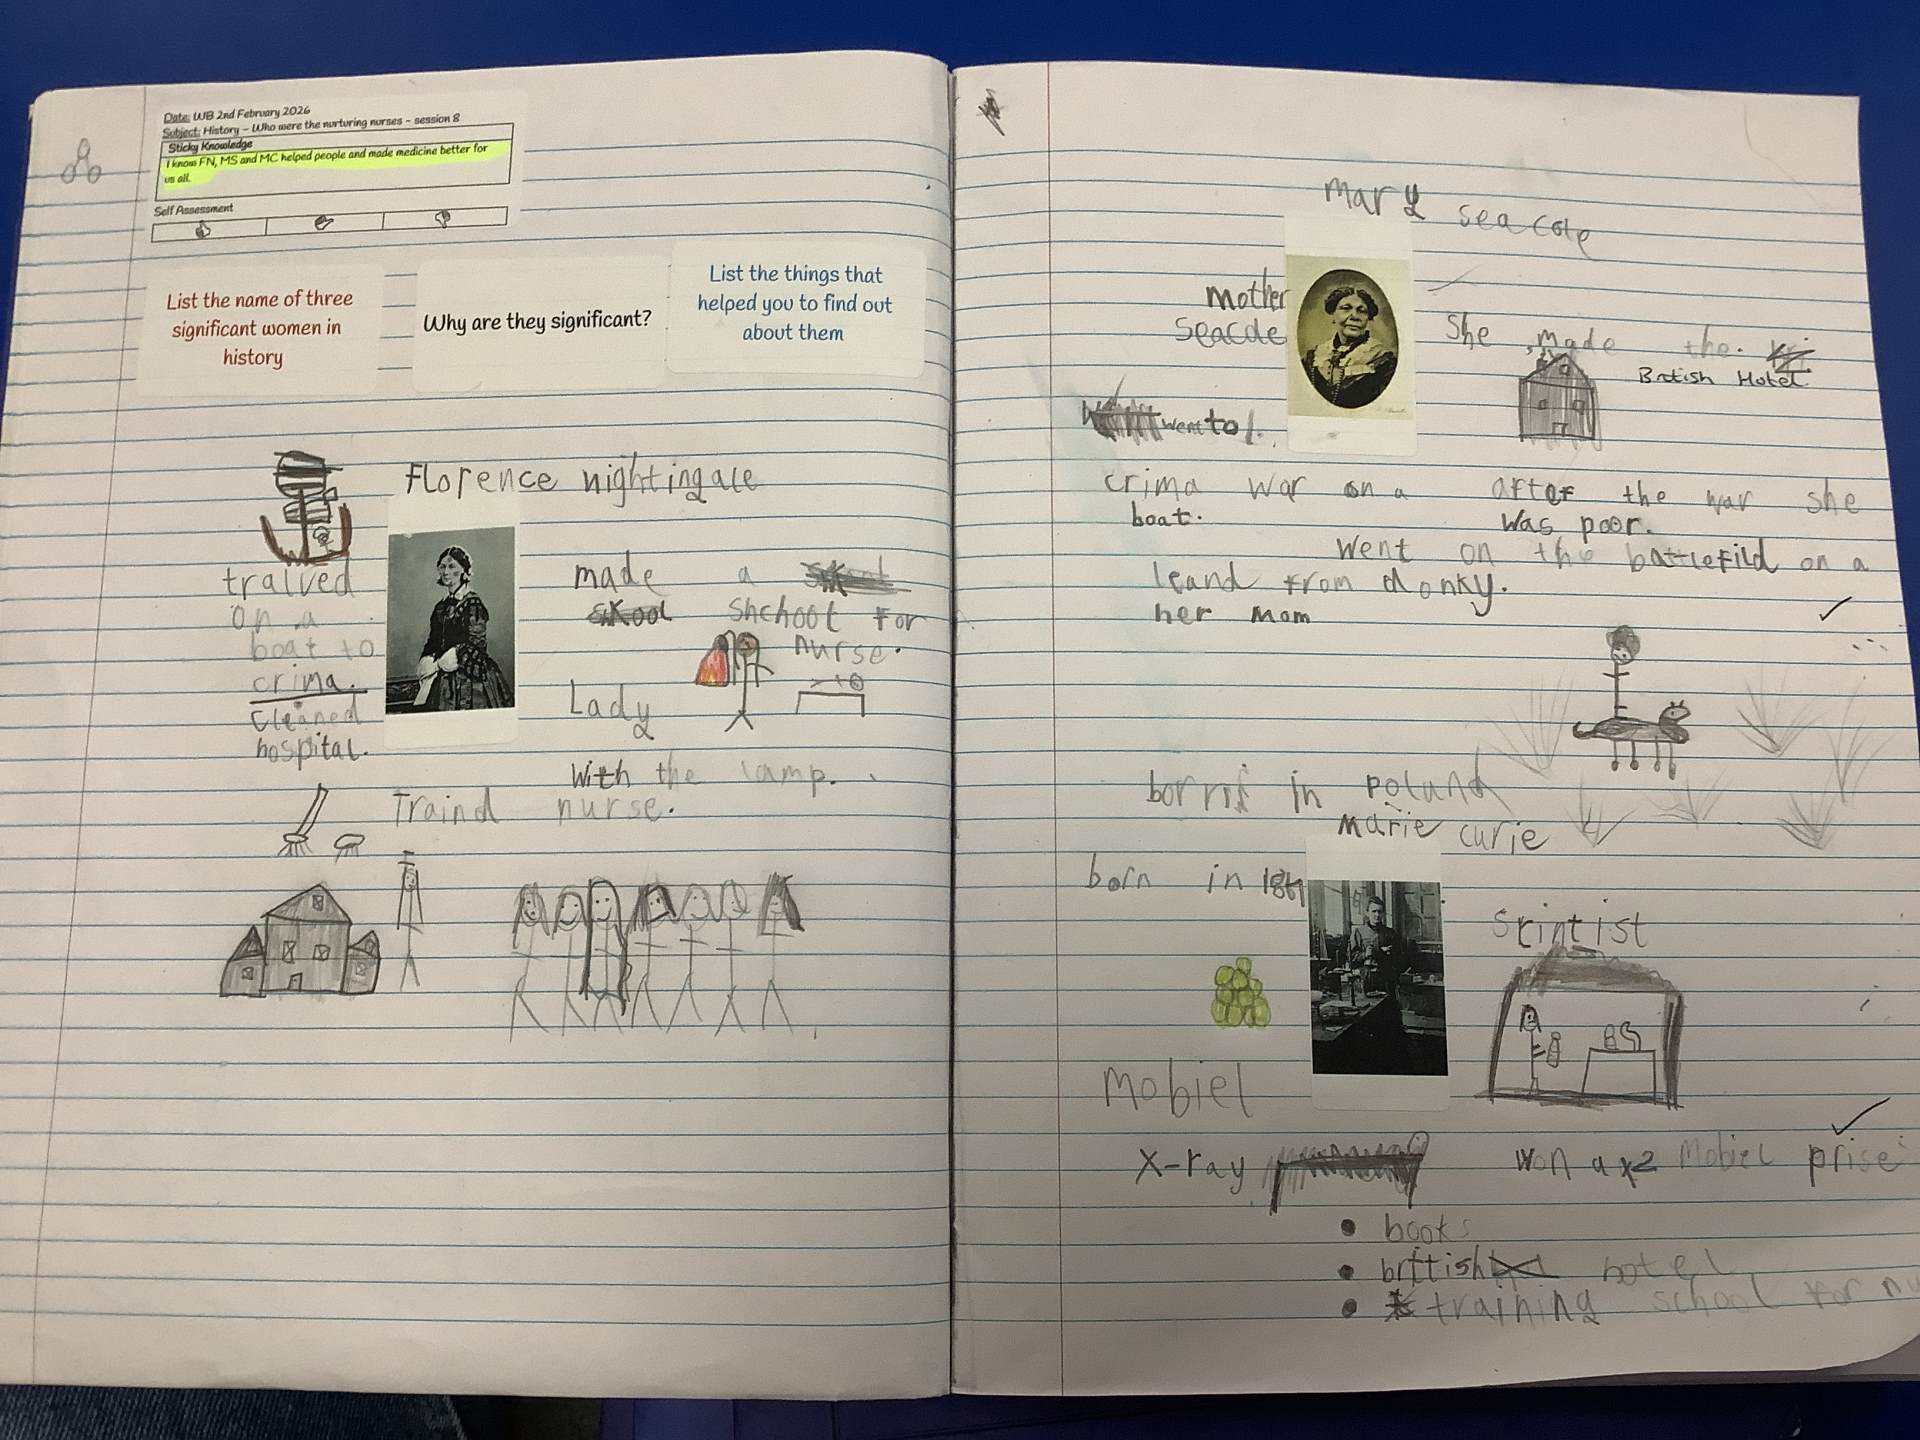 Date: WB 2nd February 2026
Subject: History – Who were the nurturing nurses – session 8
Sticky Knowledge
I know FN, MS and MC helped people and made medicine better for
us all.
Self Assessment
List the name of three
significant women in
history
Why are they significant?
List the things that
helped you to find out
about them
Florence nightingale
tralved
on a
boat to
crima.
cleaned
hospital.
made a
skool shchool for
nurse.
Lady
with the lamp.
Traind nurse.
Mary seacole
mother
Seacole
She made the
British Hotel.
went to
crima war on a
boat.
after the war she
was poor.
went on the battlefild on a
donky.
leand from
her mom
born in poland
marie curie
born in 1867
scintist
Mobiel
X-ray
won a x2 Mobiel prise
• books
• brttish hotel
• training school for nu